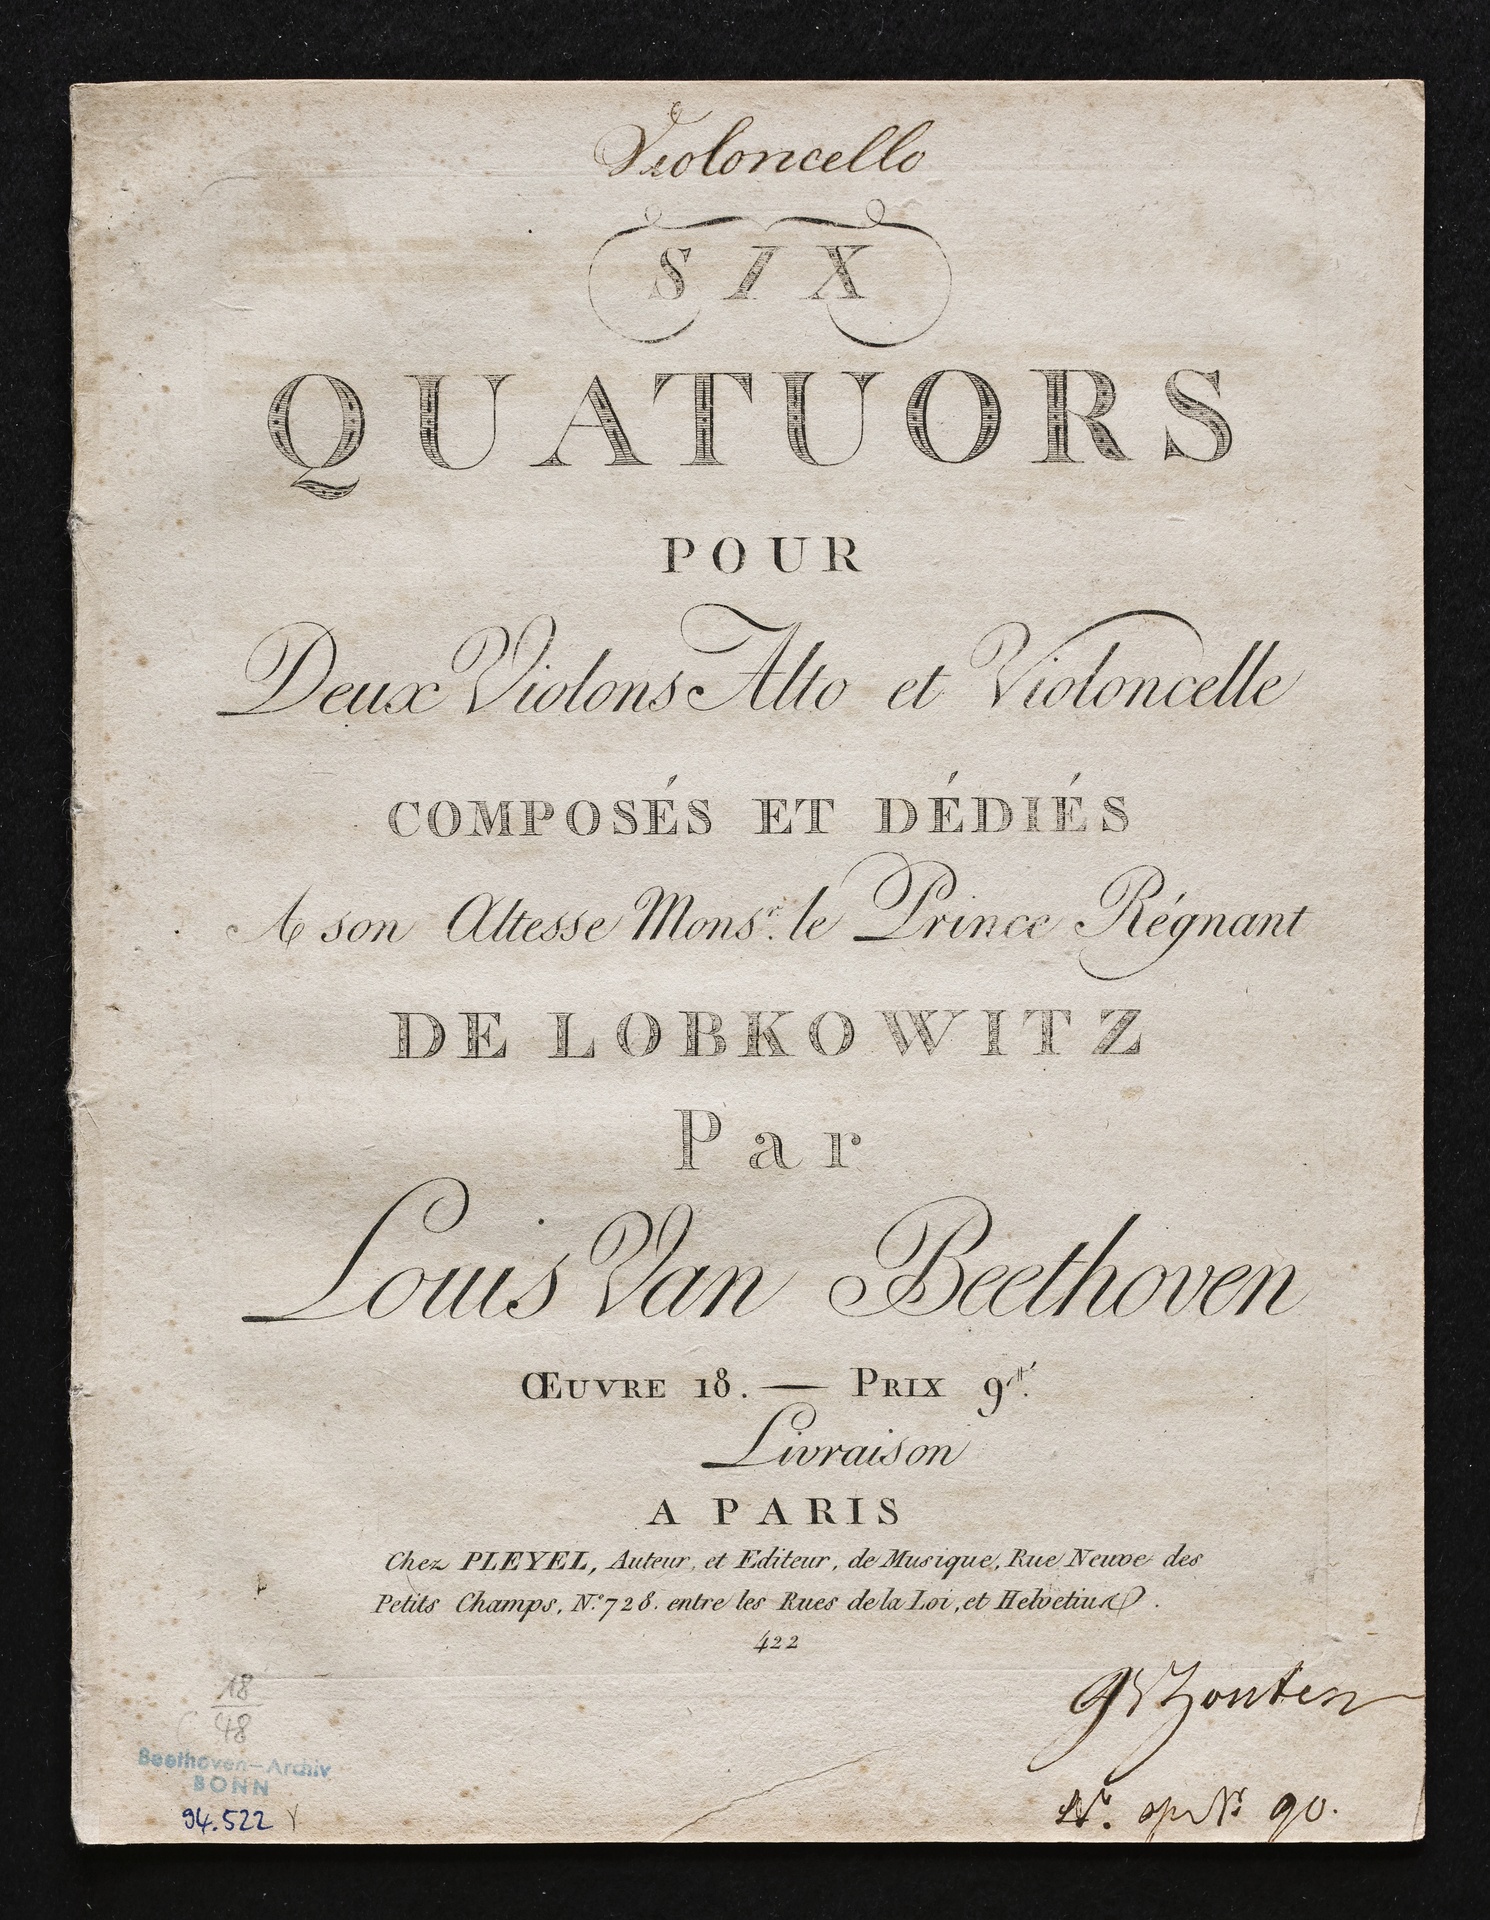 Violoncello
SIX
QUATUORS
POUR
Deux Violons Alto et Violoncelle
COMPOSÉS ET DÉDIÉS
A son Altesse Monsr. le Prince Régnant
DE LOBKOWITZ
Par
Louis Van Beethoven
ŒUVRE 18. — PRIX 9tt.
Livraison
A PARIS
Chez PLEYEL, Auteur, et Editeur, de Musique, Rue Neuve des
Petits Champs, No. 728. entre les Rues de la Loi, et Helvetius.
422
18
48
Beethoven-Archiv
BONN
94.522
90.